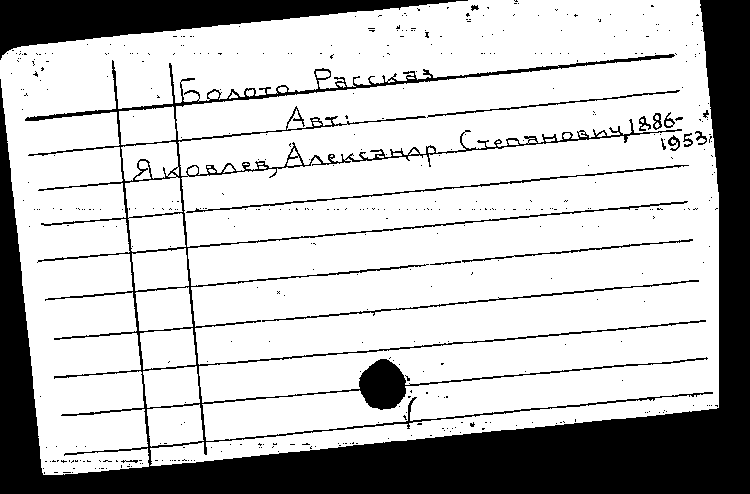 Болото. Рассказ
Авт.:
Яковлев, Александр Степанович, 1886-
1953.